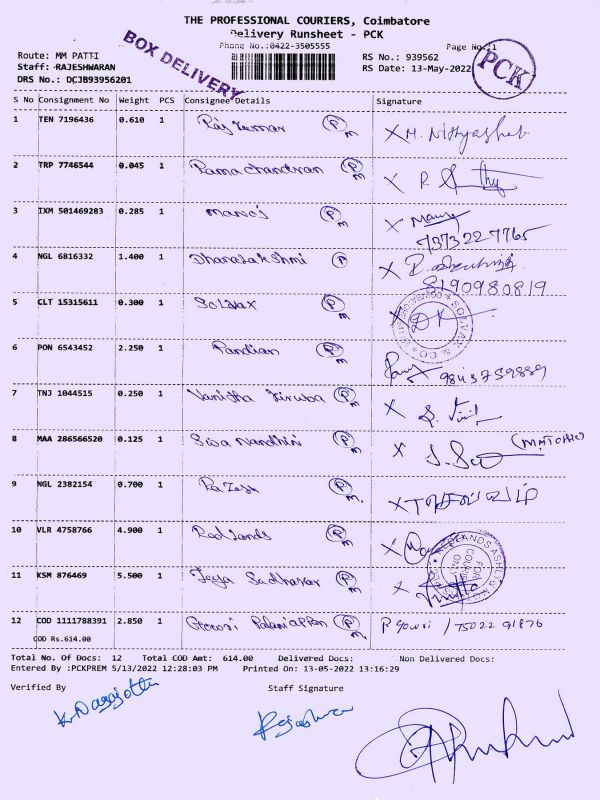 THE PROFESSIONAL COURIERS, Coimbatore
Delivery Runsheet - PCK
Phone No.:0422-3505555
Page No.:1
BOX DELIVERY
PCK
Route: MM PATTI
RS No.: 939562
Staff: RAJESHWARAN
RS Date: 13-May-2022
DRS No.: DCJB93956201
S No Consignment No Weight PCS Consignee Details Signature
1 TEN 7196436 0.610 1 Raj Kumar P m X M.
2 TRP 7746544 0.045 1 Rama chandran P m X R
3 IXM 501469283 0.285 1 manoj P m X
7373227765
4 NGL 6816332 1.400 1 Dhanalakshmi P X
8190980819
5 CLT 15315611 0.300 1 Solvax P m X DK
6 PON 6543452 2.250 1 Pandian P m 9843759889
7 TNJ 1044515 0.250 1 Vanitha P m X
8 MAA 286566520 0.125 1 Siva Nandhini P m X
9 NGL 2382154 0.700 1 P m. X
10 VLR 4758766 4.900 1 Red lands P m X
REDLANDS ASHLYN
FOR COURIER ONLY
11 KSM 876469 5.500 1 Jaya P m X
12 COD 1111788391 2.850 1 Gowri Palaniappan P m. P Gowri / 75022 91876
COD Rs.614.00
Total No. Of Docs: 12 Total COD Amt: 614.00 Delivered Docs: Non Delivered Docs:
Entered By :PCKPREM 5/13/2022 12:28:03 PM Printed On: 13-05-2022 13:16:29
Verified By Staff Signature